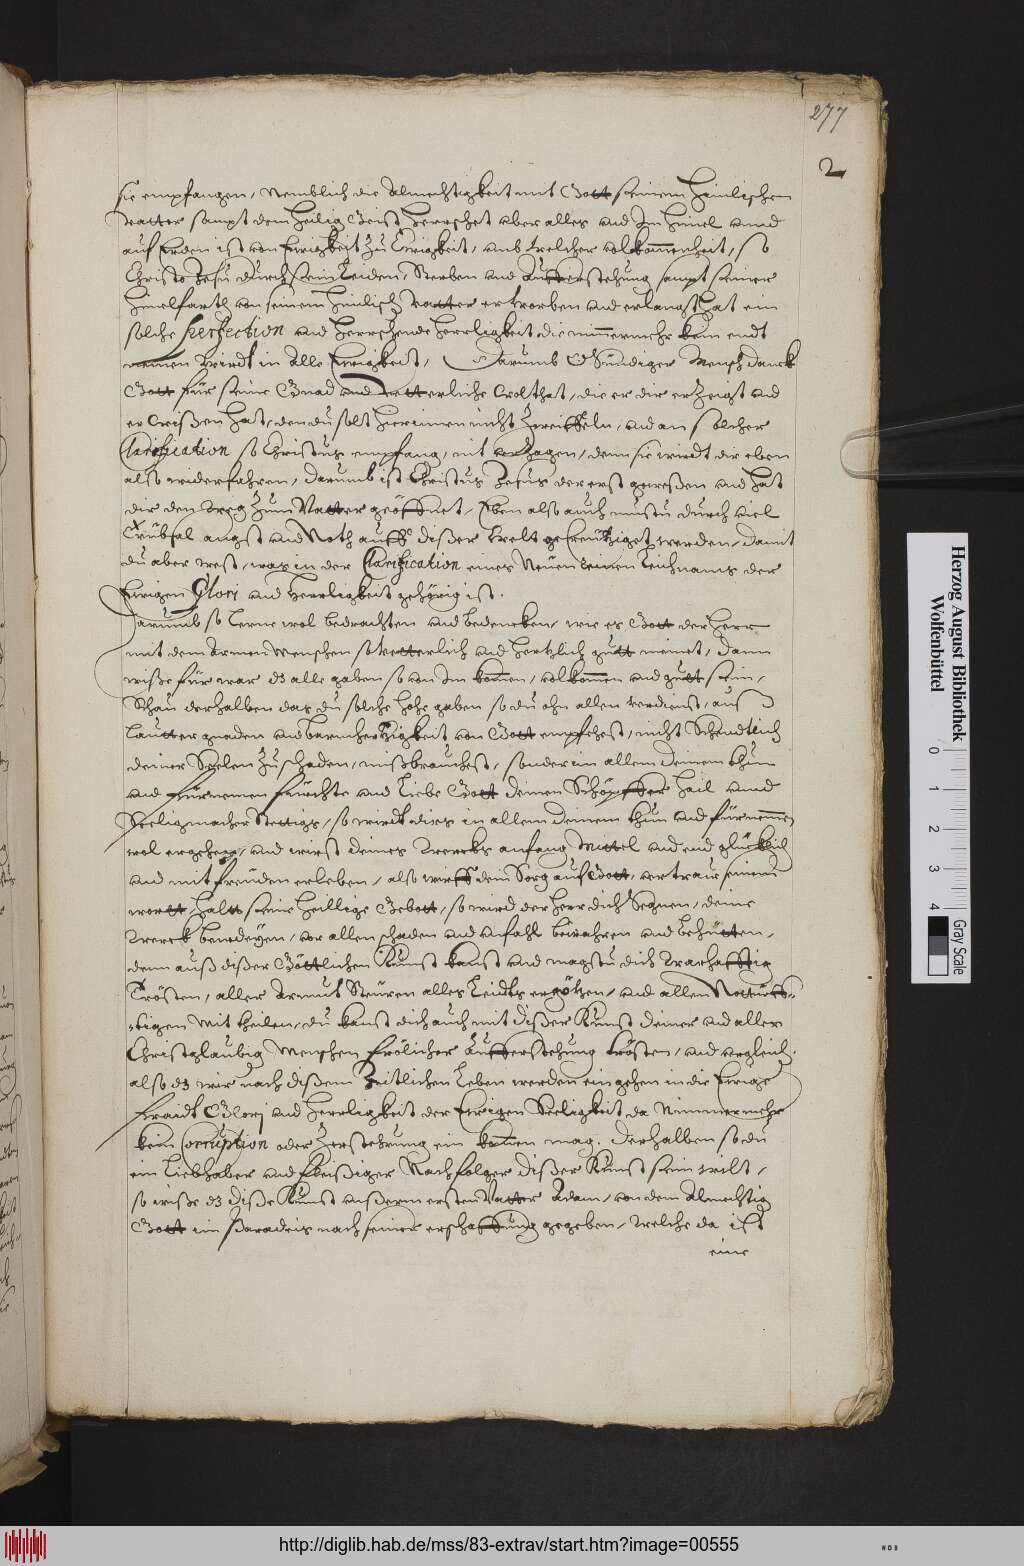 277
2
sie empfangen, Nemblich die Almechtigkeit mit Gott seinem himlischen
Vatter sampt dem heilig Geist herrschet uber alles und In himel unnd
auf Erden ist von Ewigkeit zu Ewigkeit, unnd welcher volkommenheit, so
Christo Jesu durch sein Leiden, Sterben und Aufferstehung sampt seiner
himelfarth von seinem himlisch Vatter erworben und erlangt hat ein
solche perfection und herrschende herrligkeit die nimmermehr kein endt
nemen wirdt in Alle Ewigkeit, Darumb O Sündiger Mensch danck
Gott für seine Gnad und vätterliche wolthat, die er dir erzeigt und
erwißen hat, den du solt hierinnen nicht zweiffeln, und an solcher
Clarification so Christus empfang, nit verzagen, denn sie wirdt dir eben
also widerfahren, darumb ist Christus Jesus der erst geweßen und hat
dir den weg zum Vatter geöffnet, Eben also auch mustu durch viel
Trübsal angst und Noth auff dißer welt gecreutziget werden, damit
du aber west, was in der Clarification eines Neuen Leichnams der
Ewigen Glory und Herrligkeit gehörig ist.
Darumb so Lerne wol bedrachten und bedencken, wie es Gott der Herr
mit dem Armen Menschen so vetterlich und hertzlich gutt meinet, dann
wisse für war dz alle gaben so von Im kommen, volkommen und gutt sein,
Schau derhalben das du solche hohe gaben so du ohn allen verdienst, aus
lautter gnaden und barmhertzigkeit von Gott empfehest, nicht Schendtlich
deiner Seelen zu schaden, mißbrauchest, sonder in allem deinem thun
und fürnemen fürchte und Liebe Gott deinen Schöpffer heil unnd
Seeligmacher Stettigs, so wirdt dirs in allem deinem thun und fürnemmen
wol ergehen, und wirst deines wercks anfang Mittel und end glücklich
und mit freuden erleben, also würff dein Sorg auf Gott, vertraue seinem
wortt, haltt seine heillige Gebott, so wird der herr dich Segnen, deine
werck benedeyen, vor allen schaden und unfahl bewahren und behütten,
denn auß dißer Göttlichen Kunst kanst und magstu dich warhafftig
Trösten, aller Armut Steüren alles Leidts ergötzen, und allen Notturff-
tigen Mit theilen, du kanst dich auch mit dißer Kunst deiner und aller
Christglaubig Menschen frölicher Aufferstehung trösten, und vergleich.
also dz wir nach dißem Zeitlichen Leben werden eingehen in die Ewige
fraidt Glory und Herrligkeit der Ewigen Seeligkeit da Nimmermehr
kein Corruption oder Zerstehrung ein kommen mag. Derhalben so du
ein Liebhaber und fleißiger Nachfolger dißer Kunst sein wilt,
so wisse dz diße Kunst unßerm ersten Vatter Adam, von dem Almechtig
Gott im Paradeis nach seiner erschaffung gegeben, welche da ist
eine
Herzog August Bibliothek
Wolfenbüttel
0 1 2 3 4
Gray Scale
http://diglib.hab.de/mss/83-extrav/start.htm?image=00555